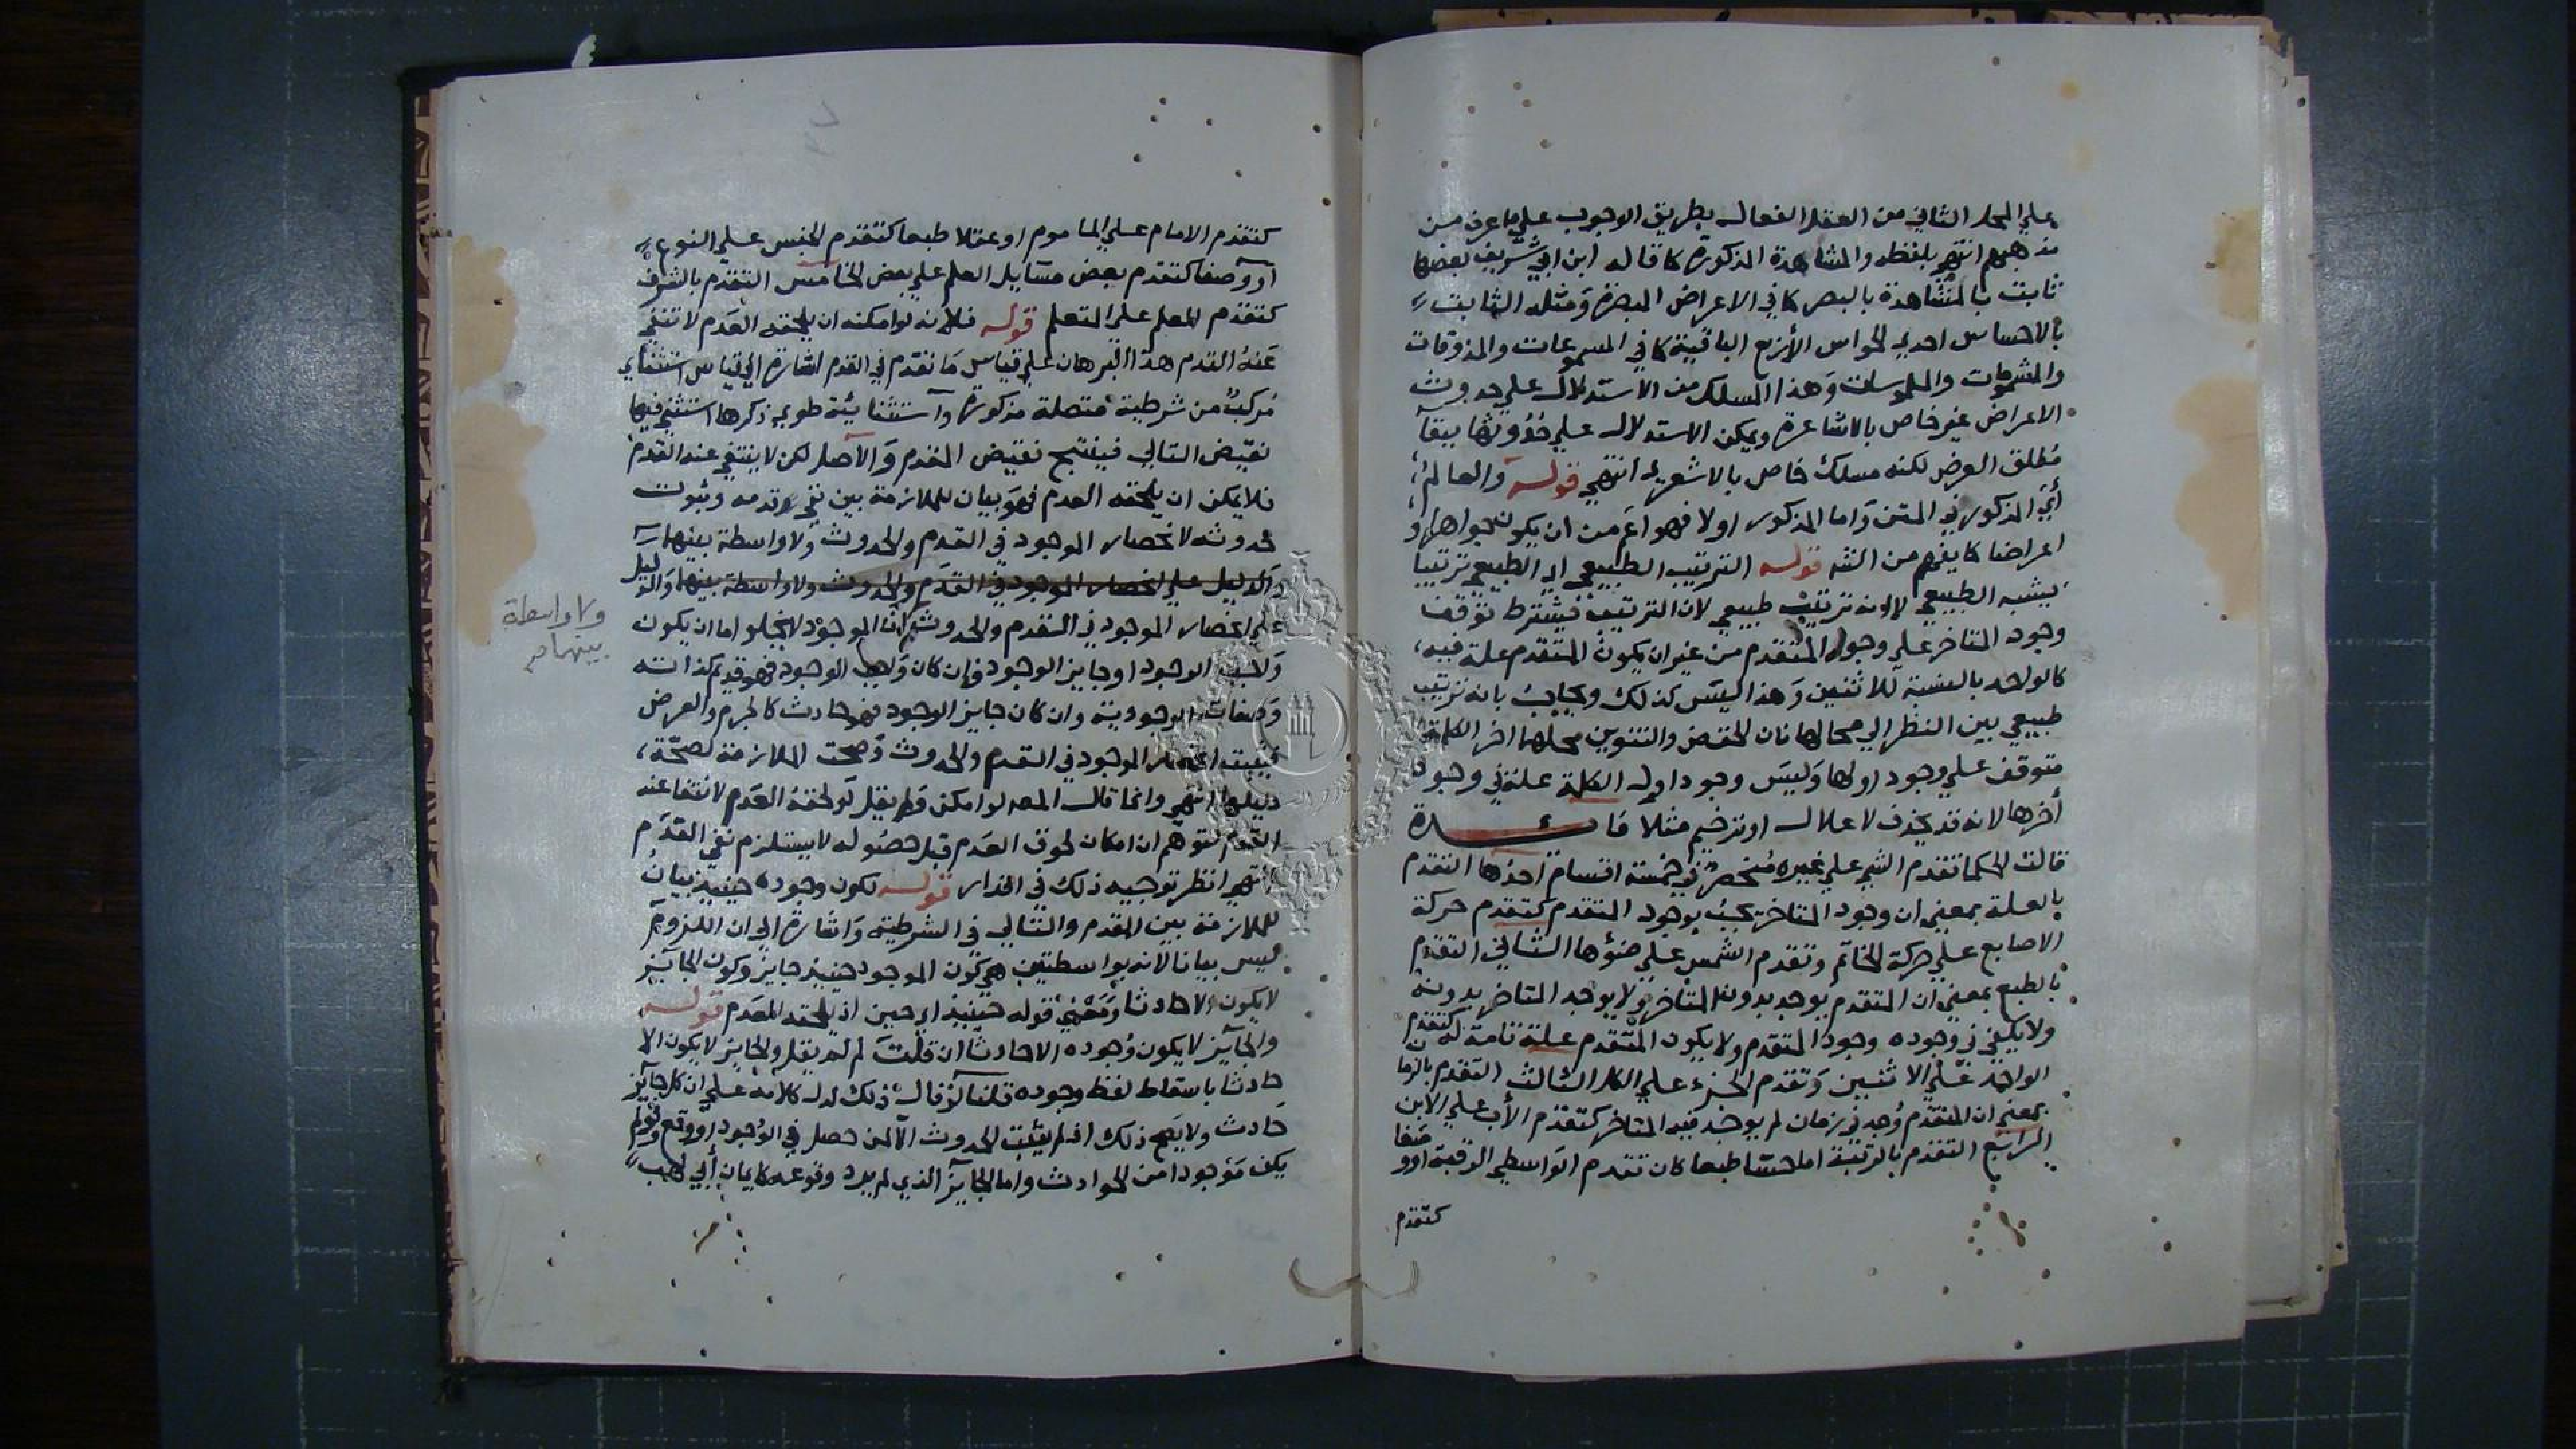 علي المحل الثاني من العقل الفعال بطريق الوجوب علي ما عرف من
مذهبهم انتهي بلفظه والمشاهدة المذكورة كما قاله ابن ابي شريف بعضها
ثابت بالمشاهدة بالبصر كما في الاعراض المبصرة ومثله الثابت
بالاحساس احدي الحواس الأربع الباقية كما في المسموعات والمذوقات
والمشمومات والملموسات وهذا المسلك من الاستدلال علي حدوث
الاعراض غير خاص بالاشاعرة ويمكن الاستدلال علي حدوثها ببقآ
مطلق العرض لكنه مسلك خاص بالاشعرية انتهي قوله والعالم
أي المذكور في المتن واما المذكور اولا فهو اعم من ان يكون جواهرا و
اعراضا كما يفهم من الشه قوله الترتيب الطبيعي اي الطبيعي ترتيبا
يشبه الطبيعي لا انه ترتيب طبيعي لان الترتيب يشترط توقف
وجود المتاخر علي وجود المتقدم من غير ان يكون المتقدم علة فيه
كالواحد بالنسبة للاثنين وهذا ليس كذلك ويجاب بانه ترتيب
طبيعي بين النظر الي محالها فان الخفض والتنوين محلها اخر الكلمة
متوقف علي وجود اولها وليس وجود اول الكلمة علة في وجود
أخرها لانه قد يحذف لاعلال او ترخيم مثلا فائدة
قالت الحكما تقدم الشي علي غيره منحصر في خمسة اقسام احدها التقدم
بالعلة بمعني ان وجود المتاخر يجب بوجود المتقدم كتقدم حركة
الاصابع علي حركة الخاتم وتقدم الشمس علي ضوؤها الثاني التقدم
بالطبع بمعني ان المتقدم يوجد بدون المتاخر ولا يوجد المتاخر بدونه
ولا يكفي في وجوده وجود المتقدم ولا يكون المتقدم علة تامة له كتقدم
الواحد علي الاثنين وتقدم الجزء علي الكل الثالث التقدم بالزمان
بمعني ان المتقدم وجد في زمان لم يوجد فيه المتاخر كتقدم الأب علي الابن
الرابع التقدم بالرتبة اما حسا طبعا كان تقدم الواسطي الرقبة او وضعا
كتقدم
كتقدم الامام علي الماموم او عقلا طبعا كتقدم الجنس علي النوع
أو وصفا كتقدم بعض مسايل العلم علي بعض الخامس التقدم بالشرف
كتقدم المعلم علي المتعلم قوله فلأنه لو امكنه ان يلحقه العدم لانتفي
عنه القدم هذا البرهان علي قياس ما تقدم في القدم اشارة الي قياس استثنائي
مركب من شرطية متصلة مذكورة واستثنائية طوي ذكرها استثني فيها
نقيض التالي فينتج نقيض المقدم والاصل لكن لا ينتفي عنه القدم
فلا يمكن ان يلحقه العدم فهو بيان للملازمة بين نفي قدمه وثبوت
حدوثه لانحصار الموجود في القدم والحدوث ولا واسطة بينهما
والدليل علي انحصار الموجود في القدم والحدوث ولا واسطة بينهما والدليل
علي انحصار الموجود في القدم والحدوث ان الموجود لا يخلو اما ان يكون
واجب الوجود او جايز الوجود فإن كان واجب الوجود فهو قديم كذاته
وصفاته الوجودية وان كان جايز الوجود فهو حادث كالجرم والعرض
فثبت انحصار الموجود في القدم والحدوث وصحت الملازمة لصحة
دليلها انتهي وانما قال المصه لو امكن ولم يقل لو لحقه العدم لانتفا عنه
القدم لتوهم ان امكان لحوق العدم قبل حصوله لا يستلزم نفي القدم
انتهي انظر توجيه ذلك في قوله لكون وجوده حينيذ بيان
للملازمة بين المقدم والتالي في الشرطية واشارة الي ان اللزوم
ليس بيانا لانه بواسطتين هي كون الموجود حينيذ جايز وكون الجايز
لا يكون الا حادثا ومعني قوله حينيذ اي حين اذ يلحقه العدم قوله
والجايز لا يكون وجوده الا حادثا ان قلت لم لم يقل والجايز لا يكون الا
حادثا باسقاط لفظ وجوده قلنا لو قال ذلك لدل كلامه علي ان كل جايز
حادث ولا يصح ذلك اذ لم يثبت الحدوث الا لمن حصل في الوجود او وقع ولم
يكن موجودا من الحوادث واما الجايز الذي لم يرد وقوعه كايمان أبي لهب
ولا واسطة
بينهما صح